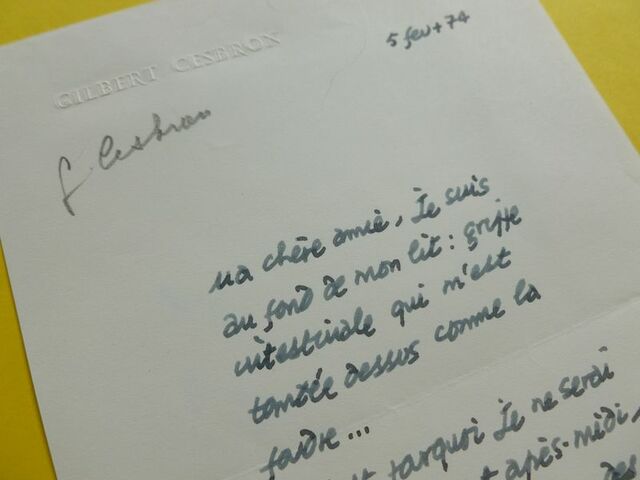 GILBERT CESBRON
5 fev + 74
G Cesbron
ma chère amie, Je suis
au fond de mon lit : grippe
intestinale qui m'est
tombée dessus comme la
foudre...
t pourquoi Je ne serai
t après-midi,
des